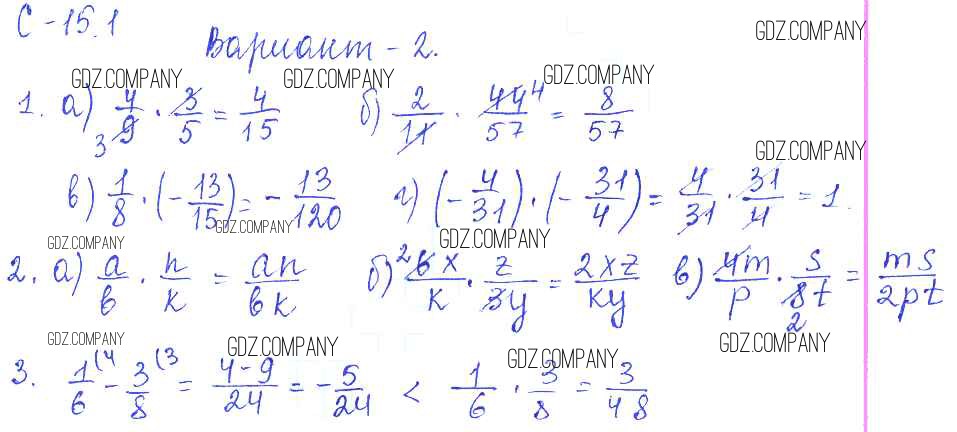 С - 15.1
GDZ.COMPANY
Вариант - 2.
GDZ.COMPANY GDZ.COMPANY GDZ.COMPANY
1. а) 4/9 · 3/5 = 4/15 б) 2/11 · 44/57 = 8/57
3 4
GDZ.COMPANY
в) 1/8 · (- 13/15) = - 13/120 г) (- 4/31) · (- 31/4) = 4/31 · 31/4 = 1.
GDZ.COMPANY GDZ.COMPANY GDZ.COMPANY
2. а) a/b · n/k = an/bk б) 2 6x/k · z/3y = 2xz/ky в) 4m/p · s/8t = ms/2pt
2
GDZ.COMPANY GDZ.COMPANY GDZ.COMPANY GDZ.COMPANY
3. 1/6 (4 - 3/8 (3 = 4-9/24 = - 5/24 < 1/6 · 3/8 = 3/48